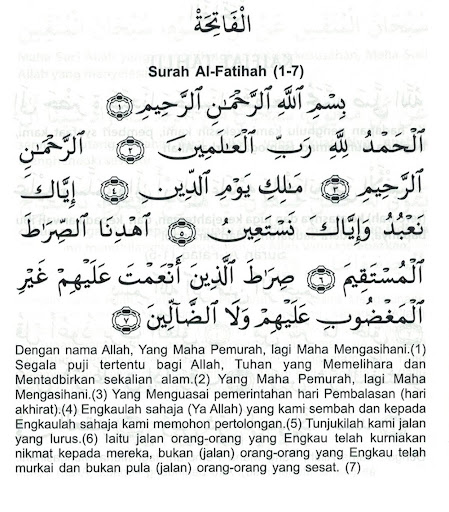 الْفَاتِحَةْ
Surah Al-Fatihah (1-7)
بِسْمِ اللَّهِ الرَّحْمَٰنِ الرَّحِيمِ ١
الْحَمْدُ لِلَّهِ رَبِّ الْعَالَمِينَ ٢ الرَّحْمَٰنِ
الرَّحِيمِ ٣ مَالِكِ يَوْمِ الدِّينِ ٤ إِيَّاكَ
نَعْبُدُ وَإِيَّاكَ نَسْتَعِينُ ٥ اهْدِنَا الصِّرَاطَ
الْمُسْتَقِيمَ ٦ صِرَاطَ الَّذِينَ أَنْعَمْتَ عَلَيْهِمْ غَيْرِ
الْمَغْضُوبِ عَلَيْهِمْ وَلَا الضَّالِّينَ ٧
Dengan nama Allah, Yang Maha Pemurah, lagi Maha Mengasihani.(1)
Segala puji tertentu bagi Allah, Tuhan yang Memelihara dan
Mentadbirkan sekalian alam.(2) Yang Maha Pemurah, lagi Maha
Mengasihani.(3) Yang Menguasai pemerintahan hari Pembalasan (hari
akhirat).(4) Engkaulah sahaja (Ya Allah) yang kami sembah dan kepada
Engkaulah sahaja kami memohon pertolongan.(5) Tunjukilah kami jalan
yang lurus.(6) Iaitu jalan orang-orang yang Engkau telah kurniakan
nikmat kepada mereka, bukan (jalan) orang-orang yang Engkau telah
murkai dan bukan pula (jalan) orang-orang yang sesat. (7)